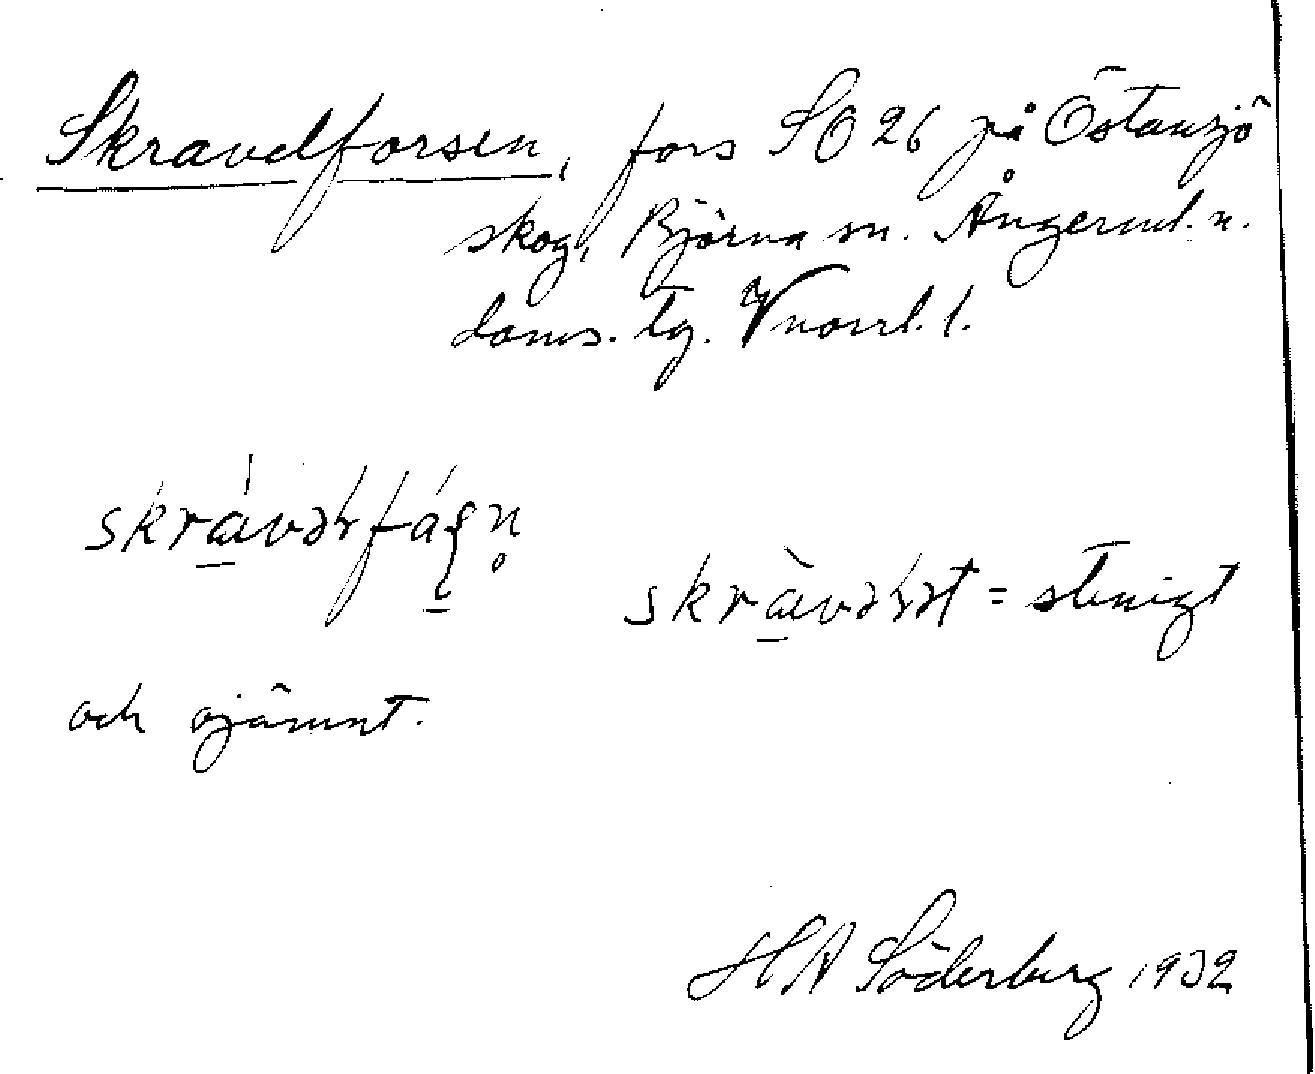 Skravelforsen, fors SO 26 på Östansjö
skog, Björna sn. Ångerml. n.
doms. lg. Vnorrl. l.
skrávəɽfáʂn̥
skràvəɽət = stenigt
och ojämnt.
HA Söderberg 1932